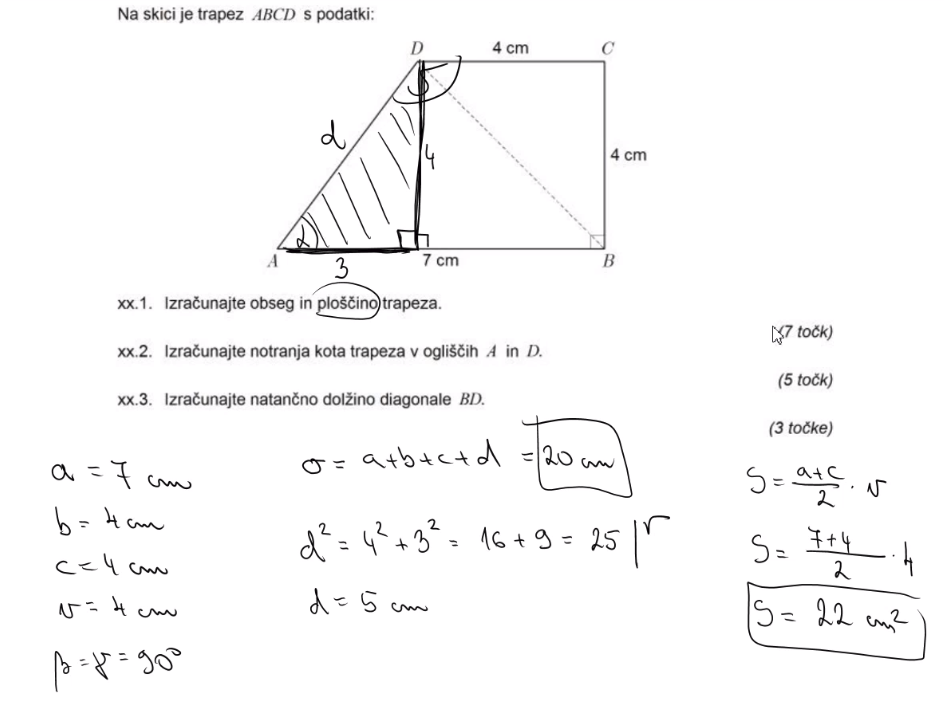 Na skici je trapez ABCD s podatki:
D 4 cm C
d
4
4 cm
α
A 3 7 cm B
xx.1. Izračunajte obseg in ploščino trapeza.
(7 točk)
xx.2. Izračunajte notranja kota trapeza v ogliščih A in D.
(5 točk)
xx.3. Izračunajte natančno dolžino diagonale BD.
(3 točke)
a = 7 cm
b = 4 cm
c = 4 cm
v = 4 cm
β = γ = 90°
o = a+b+c+d = 20 cm
d² = 4² + 3² = 16 + 9 = 25 |√
d = 5 cm
S = a+c/2 · v
S = 7+4/2 · 4
S = 22 cm²